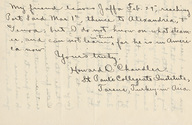 My friend leaves Jaffa Feb. 27, reaching
Port Said Mar 1st, thence to Alexandria, &
Genoa, but I do not know on what steam-
er, and can not testify for he is in Ameri-
ca now.
Yours truly,
Howard D. Chandler.
St. Pauls Collegiate Institute,
Tarsus, Turkey in Asia